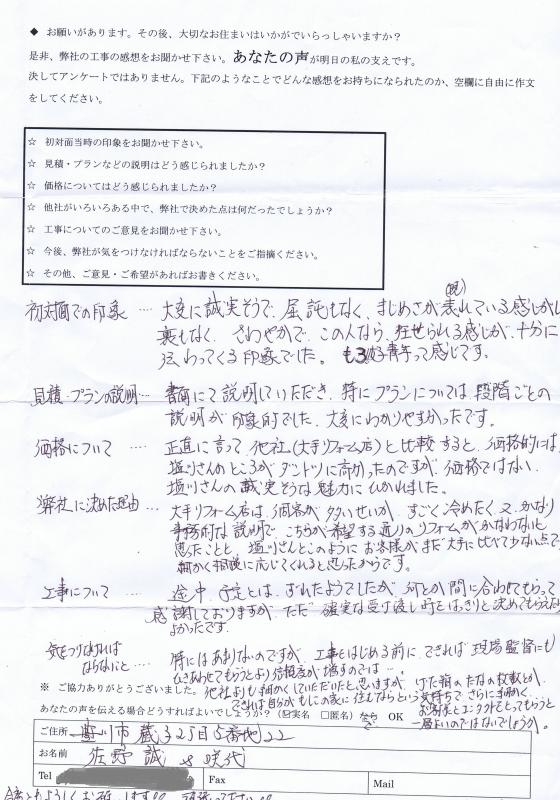 ◆ お願いがあります。その後、大切なお住まいはいかがでいらっしゃいますか？
是非、弊社の工事の感想をお聞かせ下さい。あなたの声が明日の私の支えです。
決してアンケートではありません。下記のようなことでどんな感想をお持ちになられたのか、空欄に自由に作文
をしてください。
☆ 初対面当時の印象をお聞かせ下さい。
☆ 見積・プランなどの説明はどう感じられましたか？
☆ 価格についてはどう感じられましたか？
☆ 他社がいろいろある中で、弊社で決めた点は何だったでしょうか？
☆ 工事についてのご意見をお聞かせ下さい。
☆ 今後、弊社が気をつけなければならないことをご指摘ください。
☆ その他、ご意見・ご希望があればお書きください。
初対面での印象 … 大変に誠実そうで、屈託もなく、まじめさが表れている感じがし
裏もなく、さわやかで、この人なら、任せられる感じが、十分に
伝わってくる印象でした。もろ好青年って感じです。
見積・プランの説明… 書面にて説明していただき、特にプランについては、段階ごとの
説明が印象的でした。大変にわかりやすかったです。
価格について …. 正直に言って、他社(大手リフォーム店)と比較すると、価格的には、
塩川さんのところがダントツに高かったのですが、価格ではない、
塩川さんの誠実そうな魅力にひかれました。
弊社に決めた理由 … 大手リフォーム店は、個客が多いせいか、すごく冷めたく、又、かなり
事務的な説明で、こちらが希望する通りのリフォームがかなわないと
思ったことと、塩川さんとこのようにお客様がまだ大手に比べて少ない点で
細かく相談に応じてくれると思ったからです。
工事について …. 途中、予定とは、ずれたようでしたが、何とか間に合わせてもらって
感謝しておりますが、ただ、確実な受け渡し時をはっきりと決めてもらえたら
よかったです。
気をつけなければ
ならないこと… 特にはありないのですが、工事をはじめる前に、できれば現場監督にも
ひきあわせてもらうとより信頼度が増すのでは…。
※ ご協力ありがとうございました。他社よりも細かくしていただいたと思いますが、げた箱のたなの枚数とか、
できれば自分がもしこの家に住むならという気持ちで、さらに細かく、
あなたの声を伝える場合どうすればよいでしょうか？（☑実名 □匿名）なら OK
お客様とコンタクトをとってもらうと
一層よいのではないでしょうか。
ご住所 川市蔵325目5番地22
お名前 佐野 誠 咲代
Tel Fax Mail